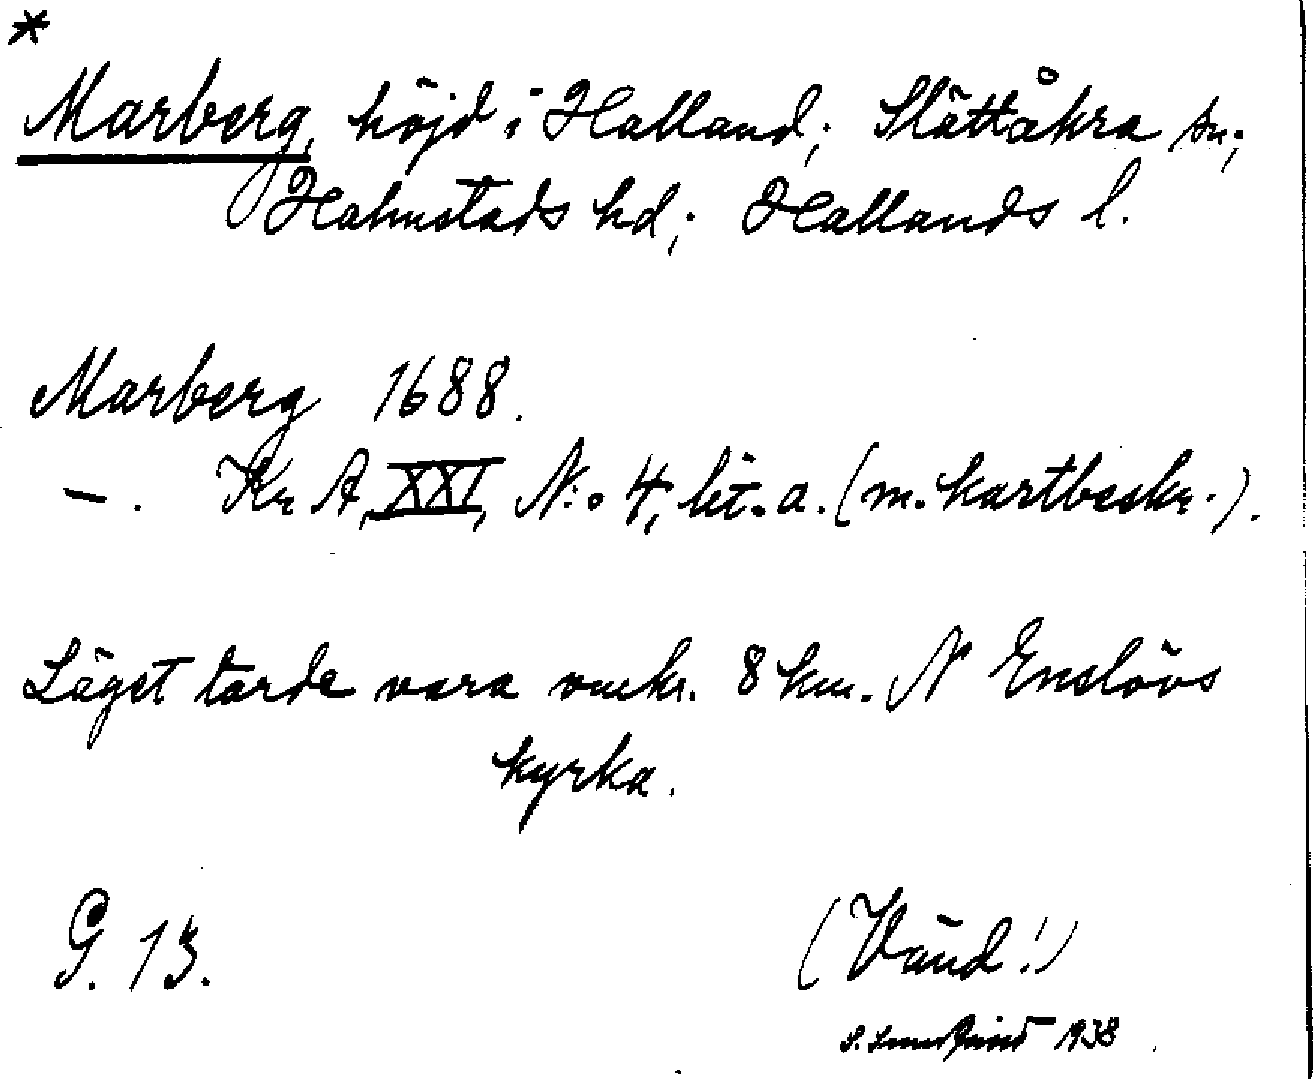 *
Marberg, höjd i Halland; Slättåkra sn;
Halmstads hd; Hallands l.
Marberg 1688.
—. Kr A, XXI, N:o 4, lit. a. (m. kartbeskr.).
Läget torde vara omkr. 8 km. N Enslövs
kyrka.
G. 13.
(Vänd!)
S. 1938